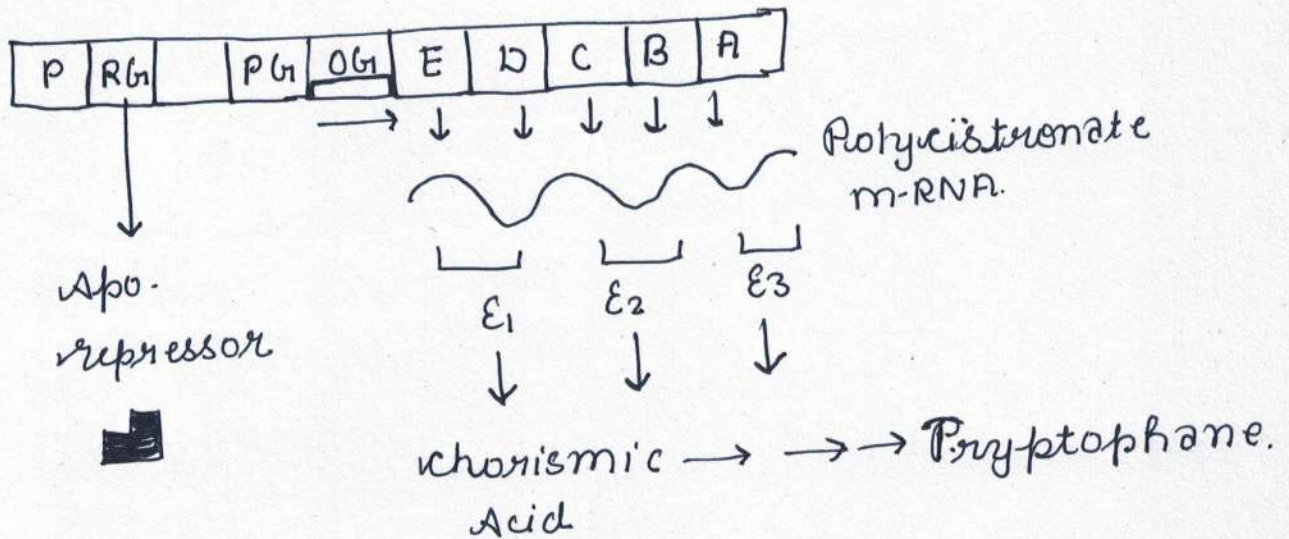 P RG PG OG E D C B A
Polycistronate
m-RNA.
Apo-
repressor
E1 E2 E3
Chorismic → → → Tryptophane.
Acid